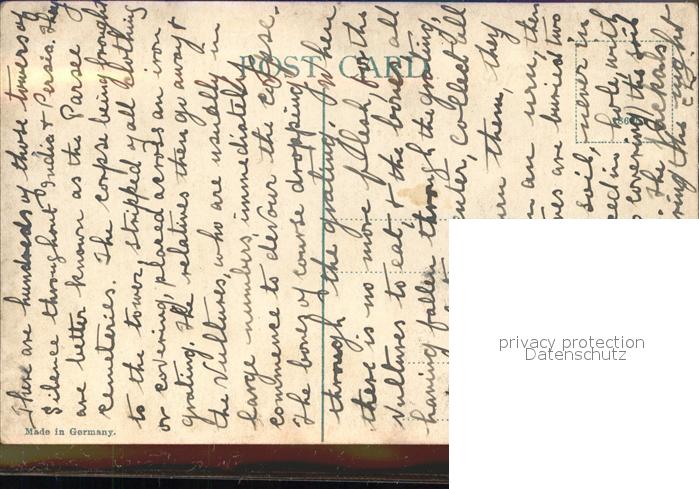 POST CARD
Made in Germany.
There are hundreds of those towers of
Silence throughout India & Persia. They
are better known as the Parsee
cemeteries. The corpse being brought
to the tower, stripped of all clothing
or covering, placed across an iron
grating. The relatives then go away &
the Vultures, who are usually in
large numbers, immediately
commence to devour the corpse.
The bones of course dropping
through the grating when
there is no more flesh for the
Vultures to eat, & the bones all
having fallen through the grating,
collect all
burn them, they
in an urn, then
are buried two
soil, never in
hole, with
covering, this soil
The Jackals
this night
privacy protection
Datenschutz